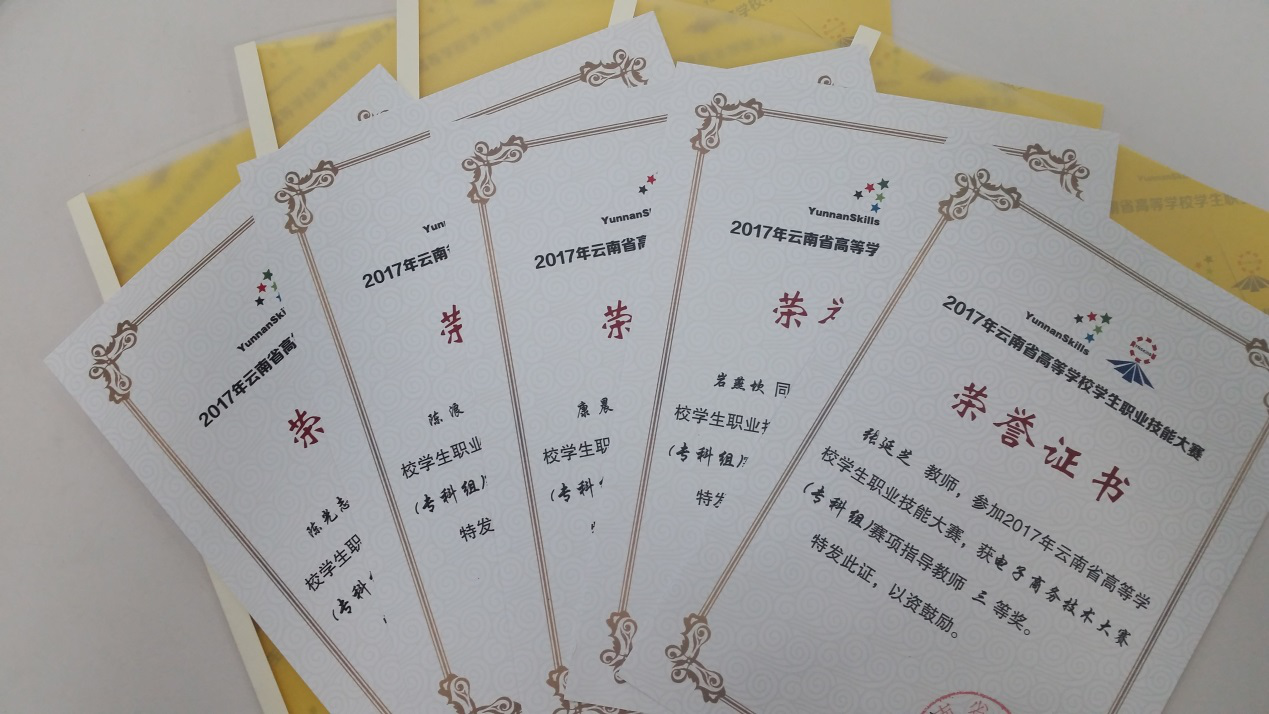 YunnanSki
2017年云南省高
荣
陈光志
校学生职
(专科
Yun
2017年云南
荣
陈浪
校学生职业
(专科组)
特发
YunnanS
2017年云南省高
荣
康晨
校学生职
(专科
YunnanSkills
2017年云南省高等学
荣
岩燕坎 同
校学生职业
(专科组)
特发
YunnanSkills
2017年云南省高等学校学生职业技能大赛
荣誉证书
张延芝 教师，参加2017年云南省高等学
校学生职业技能大赛，获电子商务技术大赛
(专科组)赛项指导教师 三 等奖。
特发此证，以资鼓励。
南省